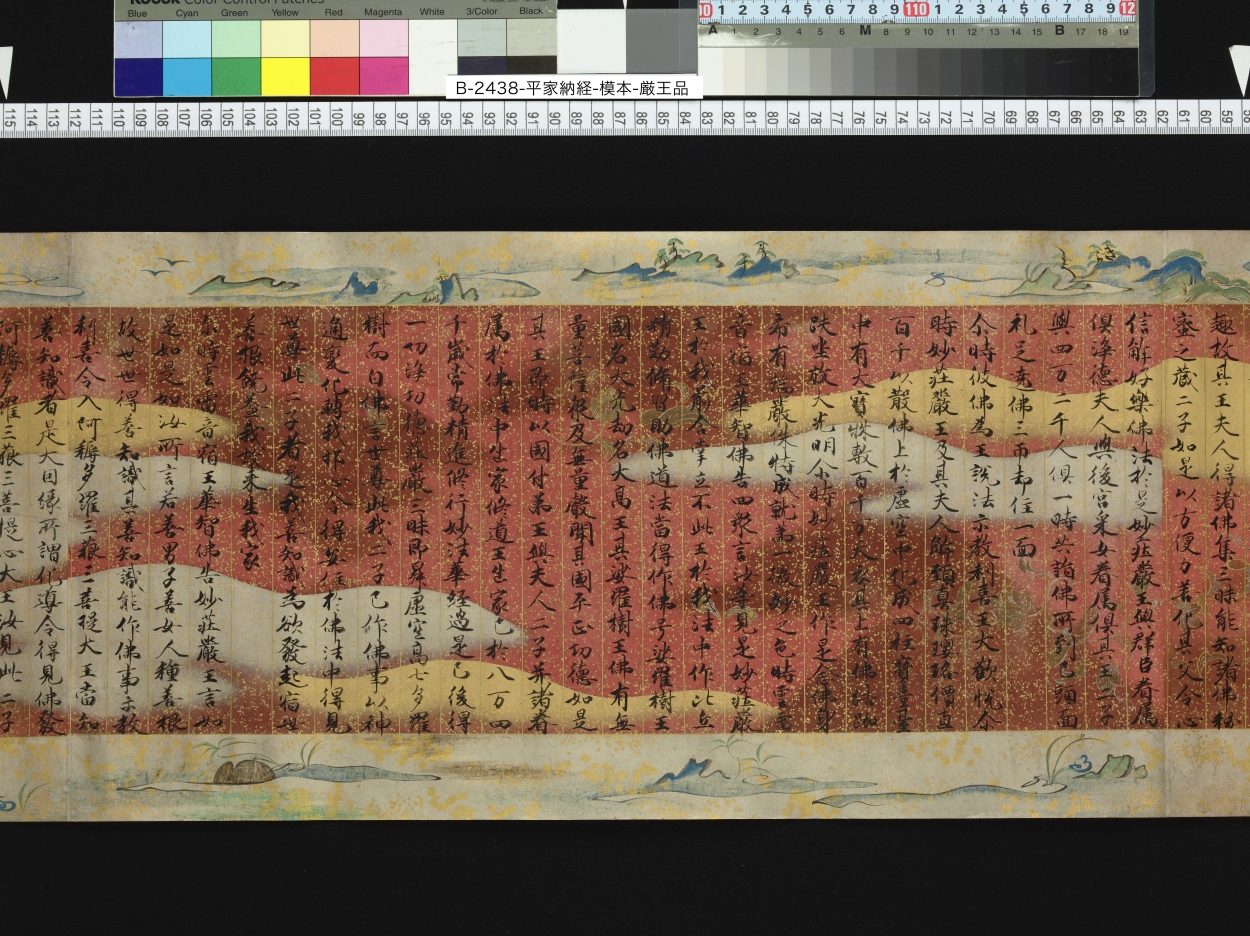 Kodak Color Control Patches
Blue Cyan Green Yellow Red Magenta White 3/Color Black
B-2438-平家納経-模本-厳王品
趣故其王夫人得諸佛集三昧能知諸佛秘
蜜之藏二子如是以方便力善化其父令心
信解好樂佛法於是妙莊嚴王與群臣眷属
俱淨德夫人與後宮采女眷属俱其王二子
與四万二千人俱一時共詣佛所到已頭面
礼足遶佛三帀却住一面
尒時彼佛為王説法示教利喜王大歡悅尒
時妙莊嚴王及其夫人解頸真珠瓔珞價直
百千以散佛上於虛空中化成四柱寶臺臺
中有大寶牀敷百千万天衣其上有佛結跏
趺坐放大光明尒時妙莊嚴王作是念佛身
希有端嚴殊特成就第一微妙之色時雲雷
音宿王華智佛告四衆言汝等見是妙莊嚴
王於我前合掌立不此王於我法中作比丘
精勤修習助佛道法當得作佛号娑羅樹王
國名大光劫名大高王其娑羅樹王佛有無
量菩薩衆及無量聲聞其國平正功德如是
其王即時以國付弟王與夫人二子并諸眷
属於佛法中出家修道王出家已於八万四
千歲常勤精進修行妙法華經過是已後得
一切淨功德莊嚴三昧即昇虛空高七多羅
樹而白佛言世尊此我二子已作佛事以神
通變化轉我邪心令得安住於佛法中得見
世尊此二子者是我善知識為欲發起宿世
善根饒益我故來生我家
尒時雲雷音宿王華智佛告妙莊嚴王言如
是如是如汝所言若善男子善女人種善根
故世世得善知識其善知識能作佛事示教
利喜令入阿耨多羅三藐三菩提大王當知
善知識者是大因縁所謂化導令得見佛發
阿耨多羅三藐三菩提心大王汝見此二子